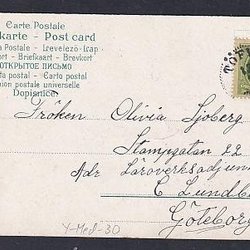 Carte Postale
karte - Post card
Postale - Levelező-Lap
ort - Briefkaart - Brevkort
ОТКРЫТОЕ ПИСЬМО
rta postal - Cartão postal
nion postale universelle
Dopisnice
Fröken Olivia Sjöberg
Stampgatan 22
Adr Läroverksadjun
C Lundb
Göteborg
Y-Med-30